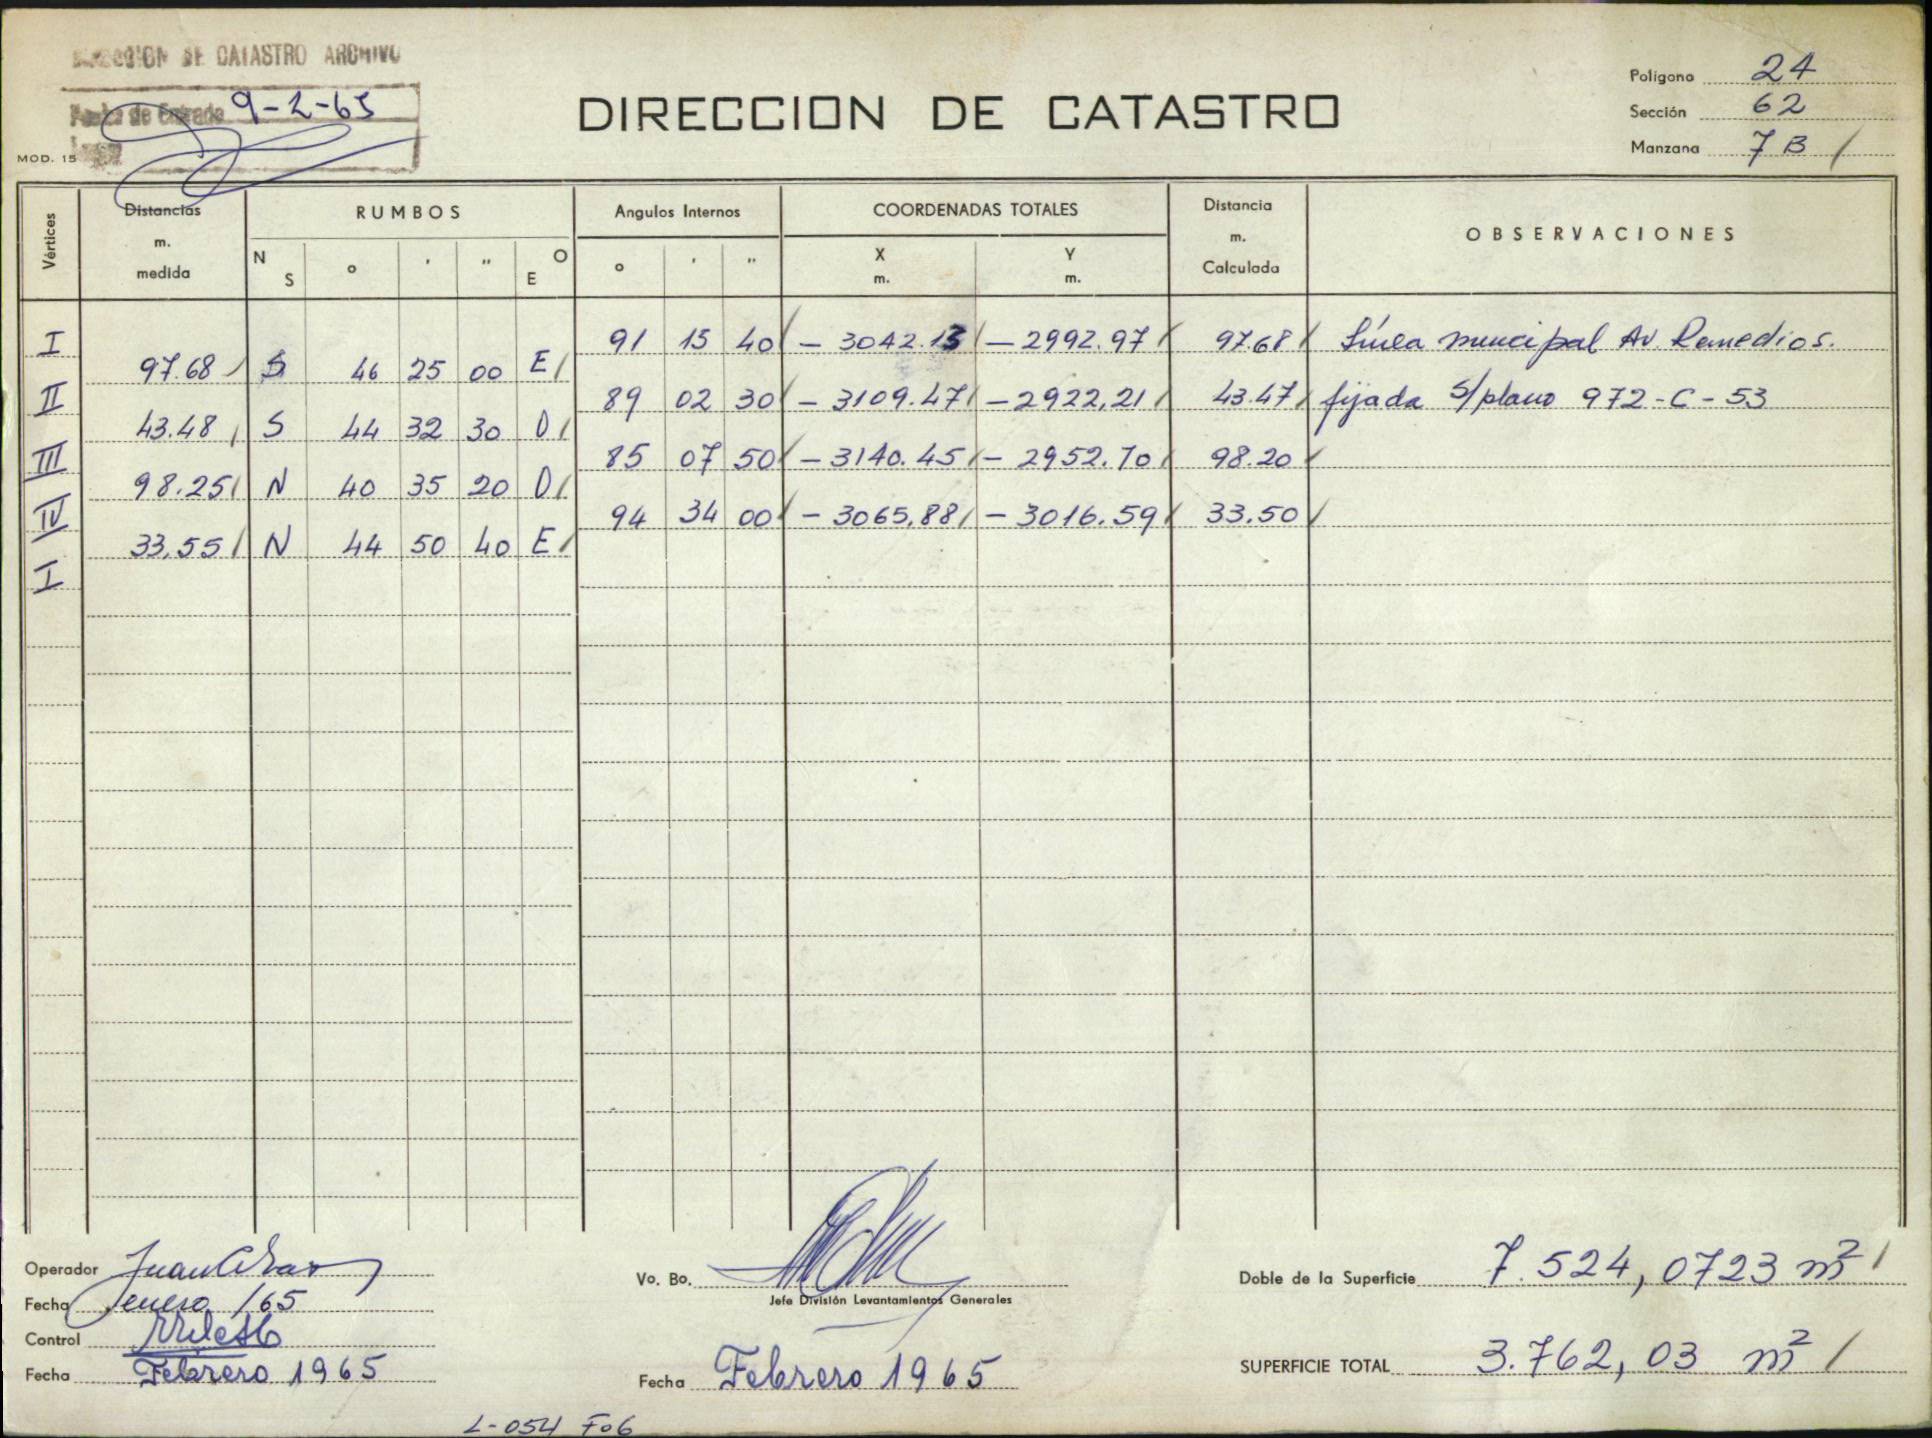 DIRECCION DE CATASTRO ARCHIVO
Fecha de Entrada 9-2-65
MOD. 15
DIRECCION DE CATASTRO
Polígono 24
Sección 62
Manzana 7B /
Vértices
Distancias m. medida
RUMBOS
N S ° ' '' O E
Angulos Internos
° ' ''
COORDENADAS TOTALES
X m. Y m.
Distancia m. Calculada
OBSERVACIONES
I 91 15 40 / - 3042.13 / - 2992.97 / 97.68 / Línea municipal Av. Remedios.
97.68 / S 46 25 00 E /
II 89 02 30 / - 3109.47 / - 2922,21 / 43.47 / fijada s/plano 972-C-53
43.48 / S 44 32 30 O /
III 85 07 50 / - 3140.45 / - 2952.70 / 98.20 /
98.25 / N 40 35 20 O /
IV 94 34 00 / - 3065,88 / - 3016.59 / 33.50 /
33,55 / N 44 50 40 E /
I
Operador Juan
Fecha Enero /65
Control
Fecha Febrero 1965
Vo. Bo.
Jefe División Levantamientos Generales
Fecha Febrero 1965
Doble de la Superficie 7.524,0723 m² /
SUPERFICIE TOTAL 3.762,03 m² /
L-054 F06